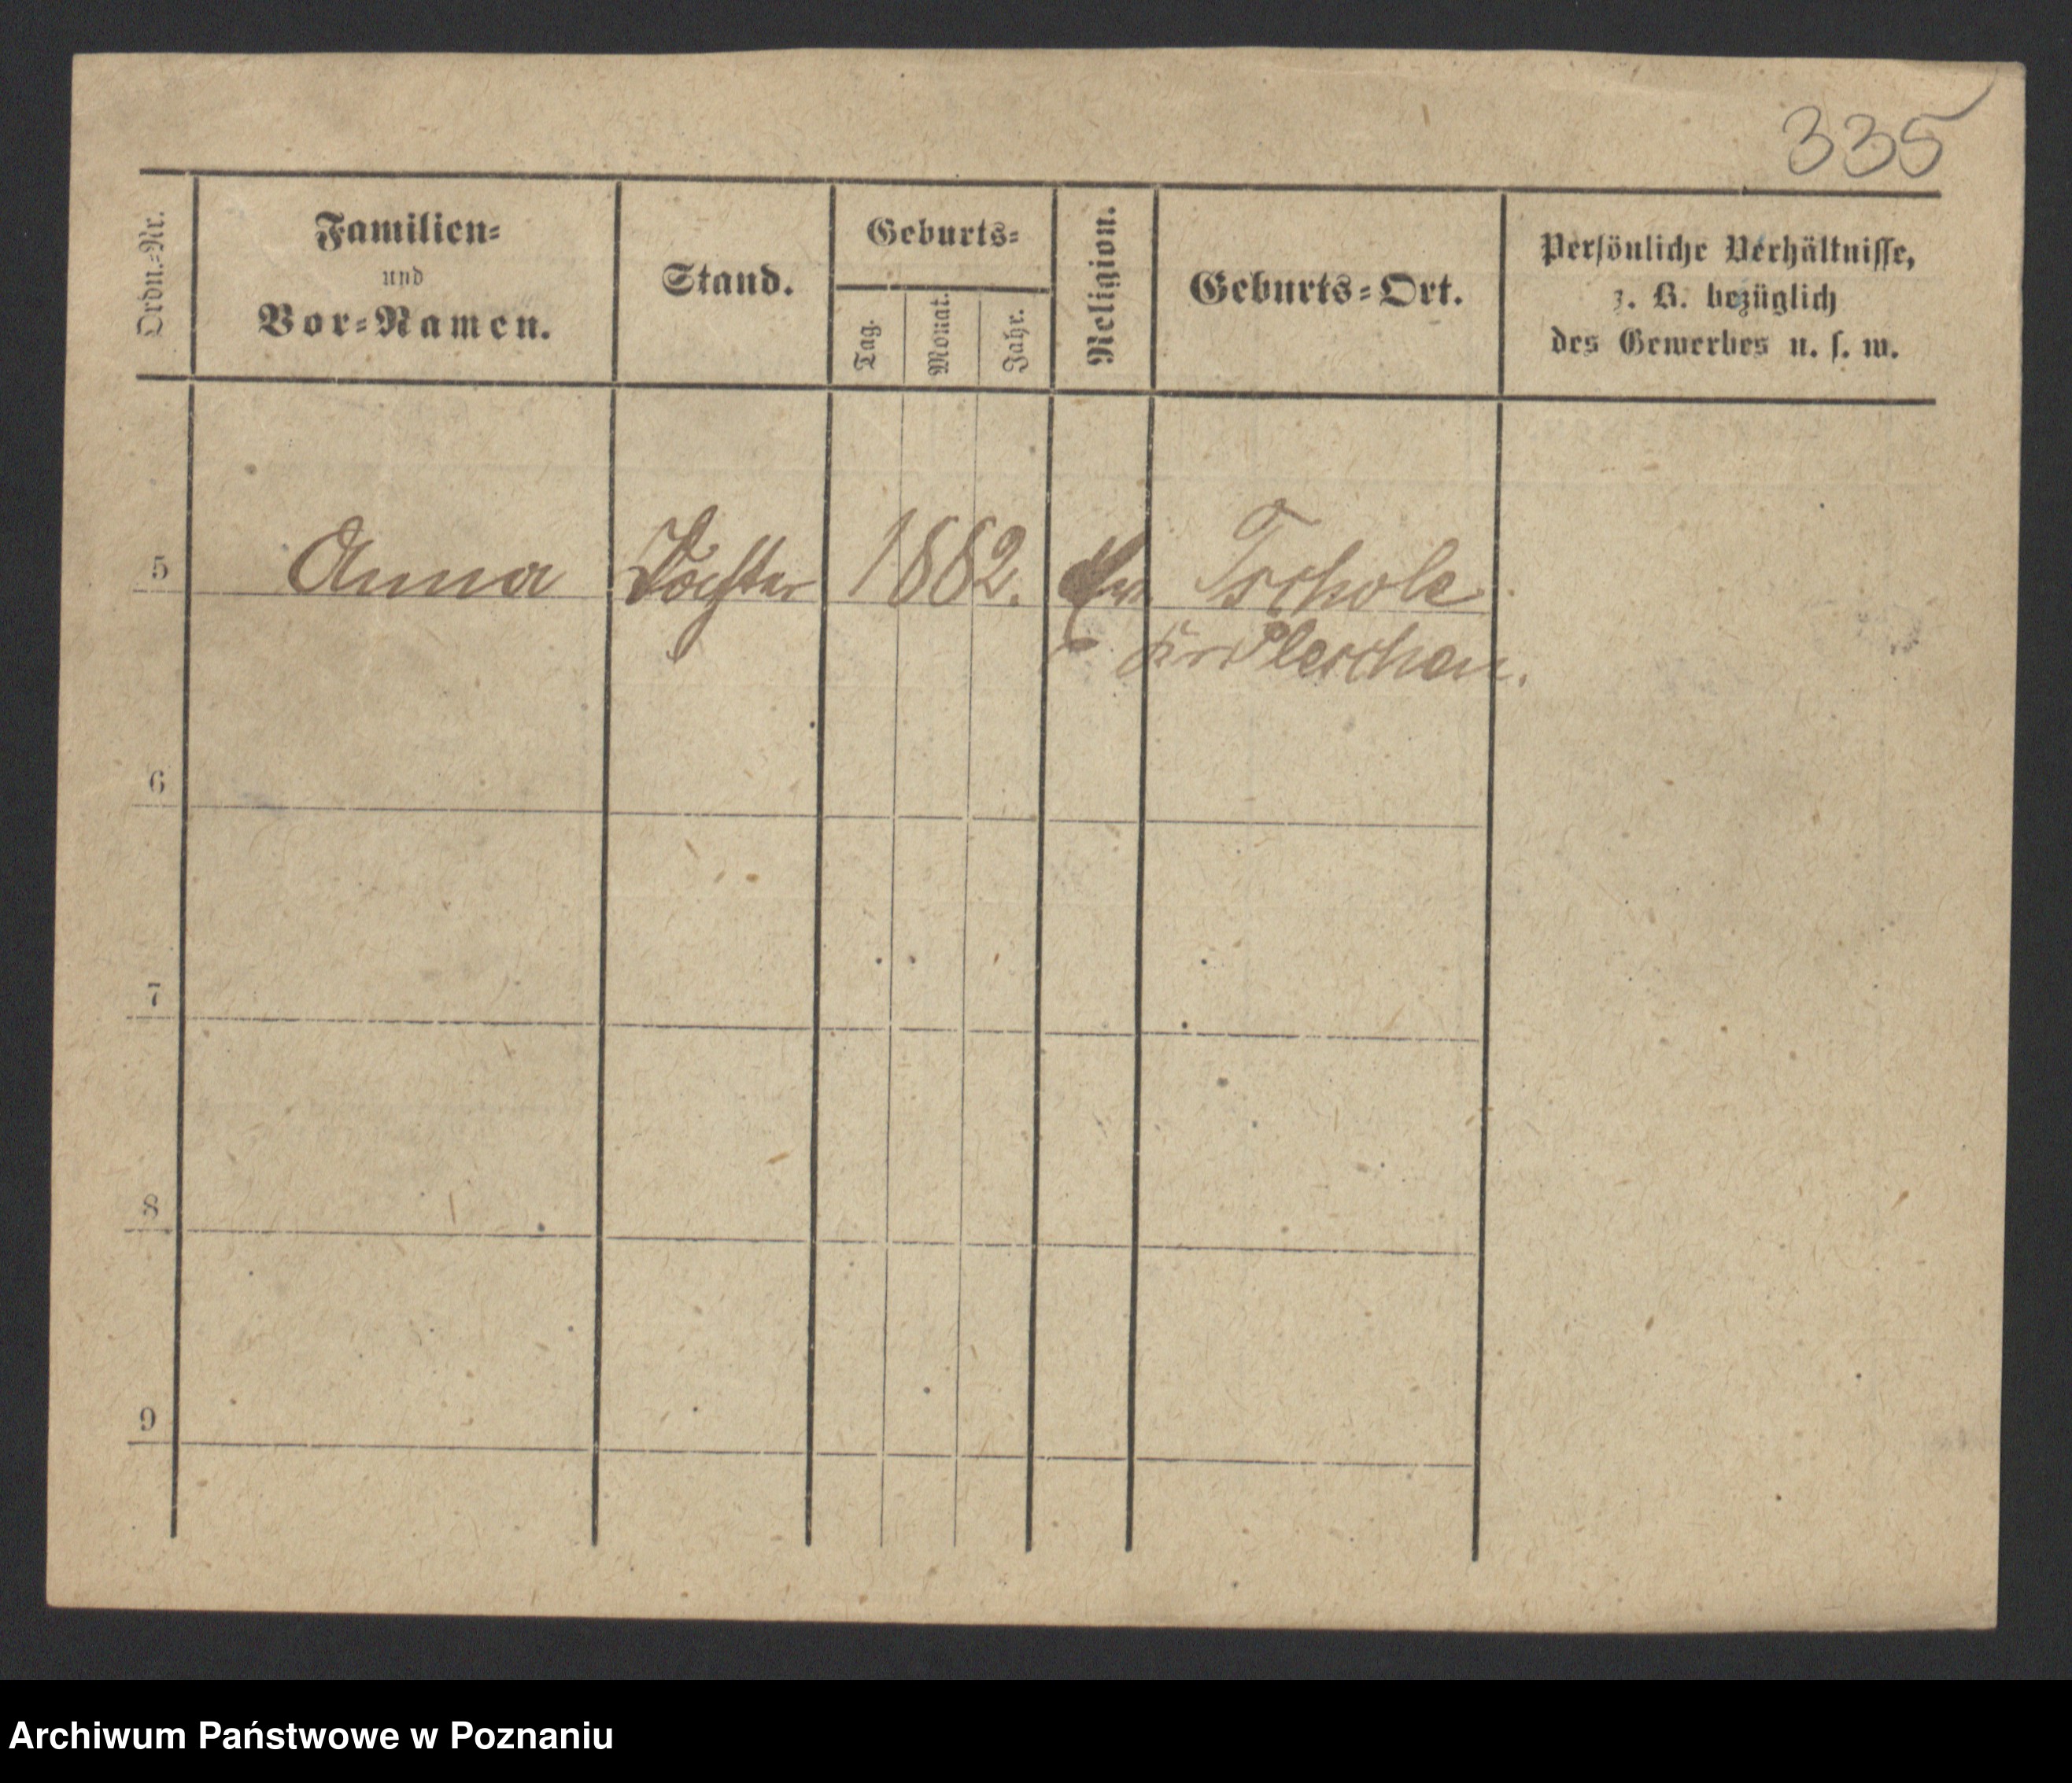 335
Ordn.-Nr.
Familien-
und
Vor-Namen.
Stand.
Geburts-
Tag.
Monat.
Jahr.
Religion.
Geburts-Ort.
Persönliche Verhältnisse,
z. B. bezüglich
des Gewerbes u. s. w.
5 Anna Tochter 1882.
Kr Pleschen.
6
7
8
9
Archiwum Państwowe w Poznaniu